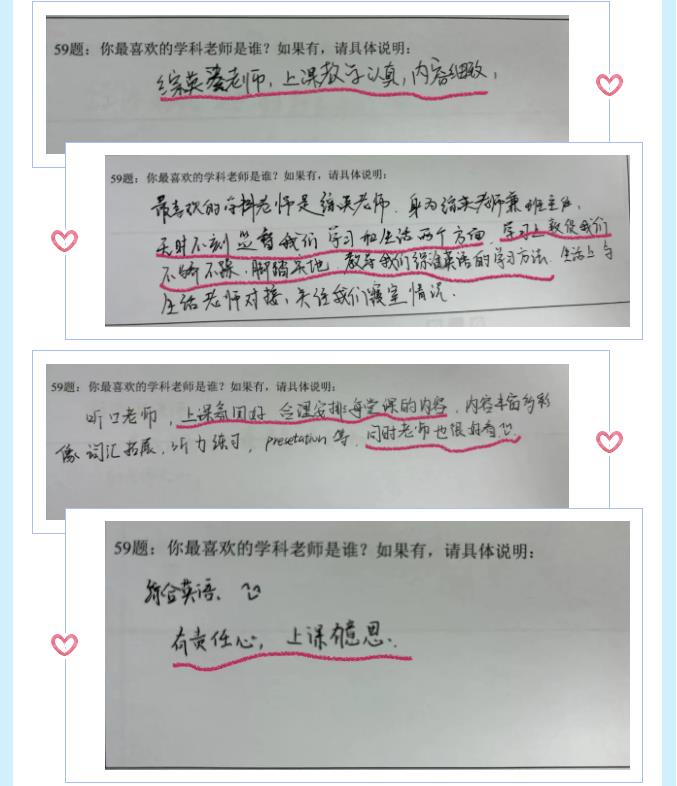 59题：你最喜欢的学科老师是谁？如果有，请具体说明：
综英老师，上课教学认真，内容细致，
59题：你最喜欢的学科老师是谁？如果有，请具体说明：
最喜欢的学科老师是综英老师．身为综英老师兼班主任，
无时不刻监督我们学习和生活两个方面．学习上敦促我们
不骄不躁．脚踏实地．教导我们综合英语的学习方法．生活上与
生活老师对接，关注我们寝室情况．
59题：你最喜欢的学科老师是谁？如果有，请具体说明：
听口老师，上课氛围好 合理安排每堂课的内容．内容丰富多彩
像词汇拓展，听力练习，presetation等．同时老师也很好看
59题：你最喜欢的学科老师是谁？如果有，请具体说明：
综合英语．
有责任心，上课有意思．